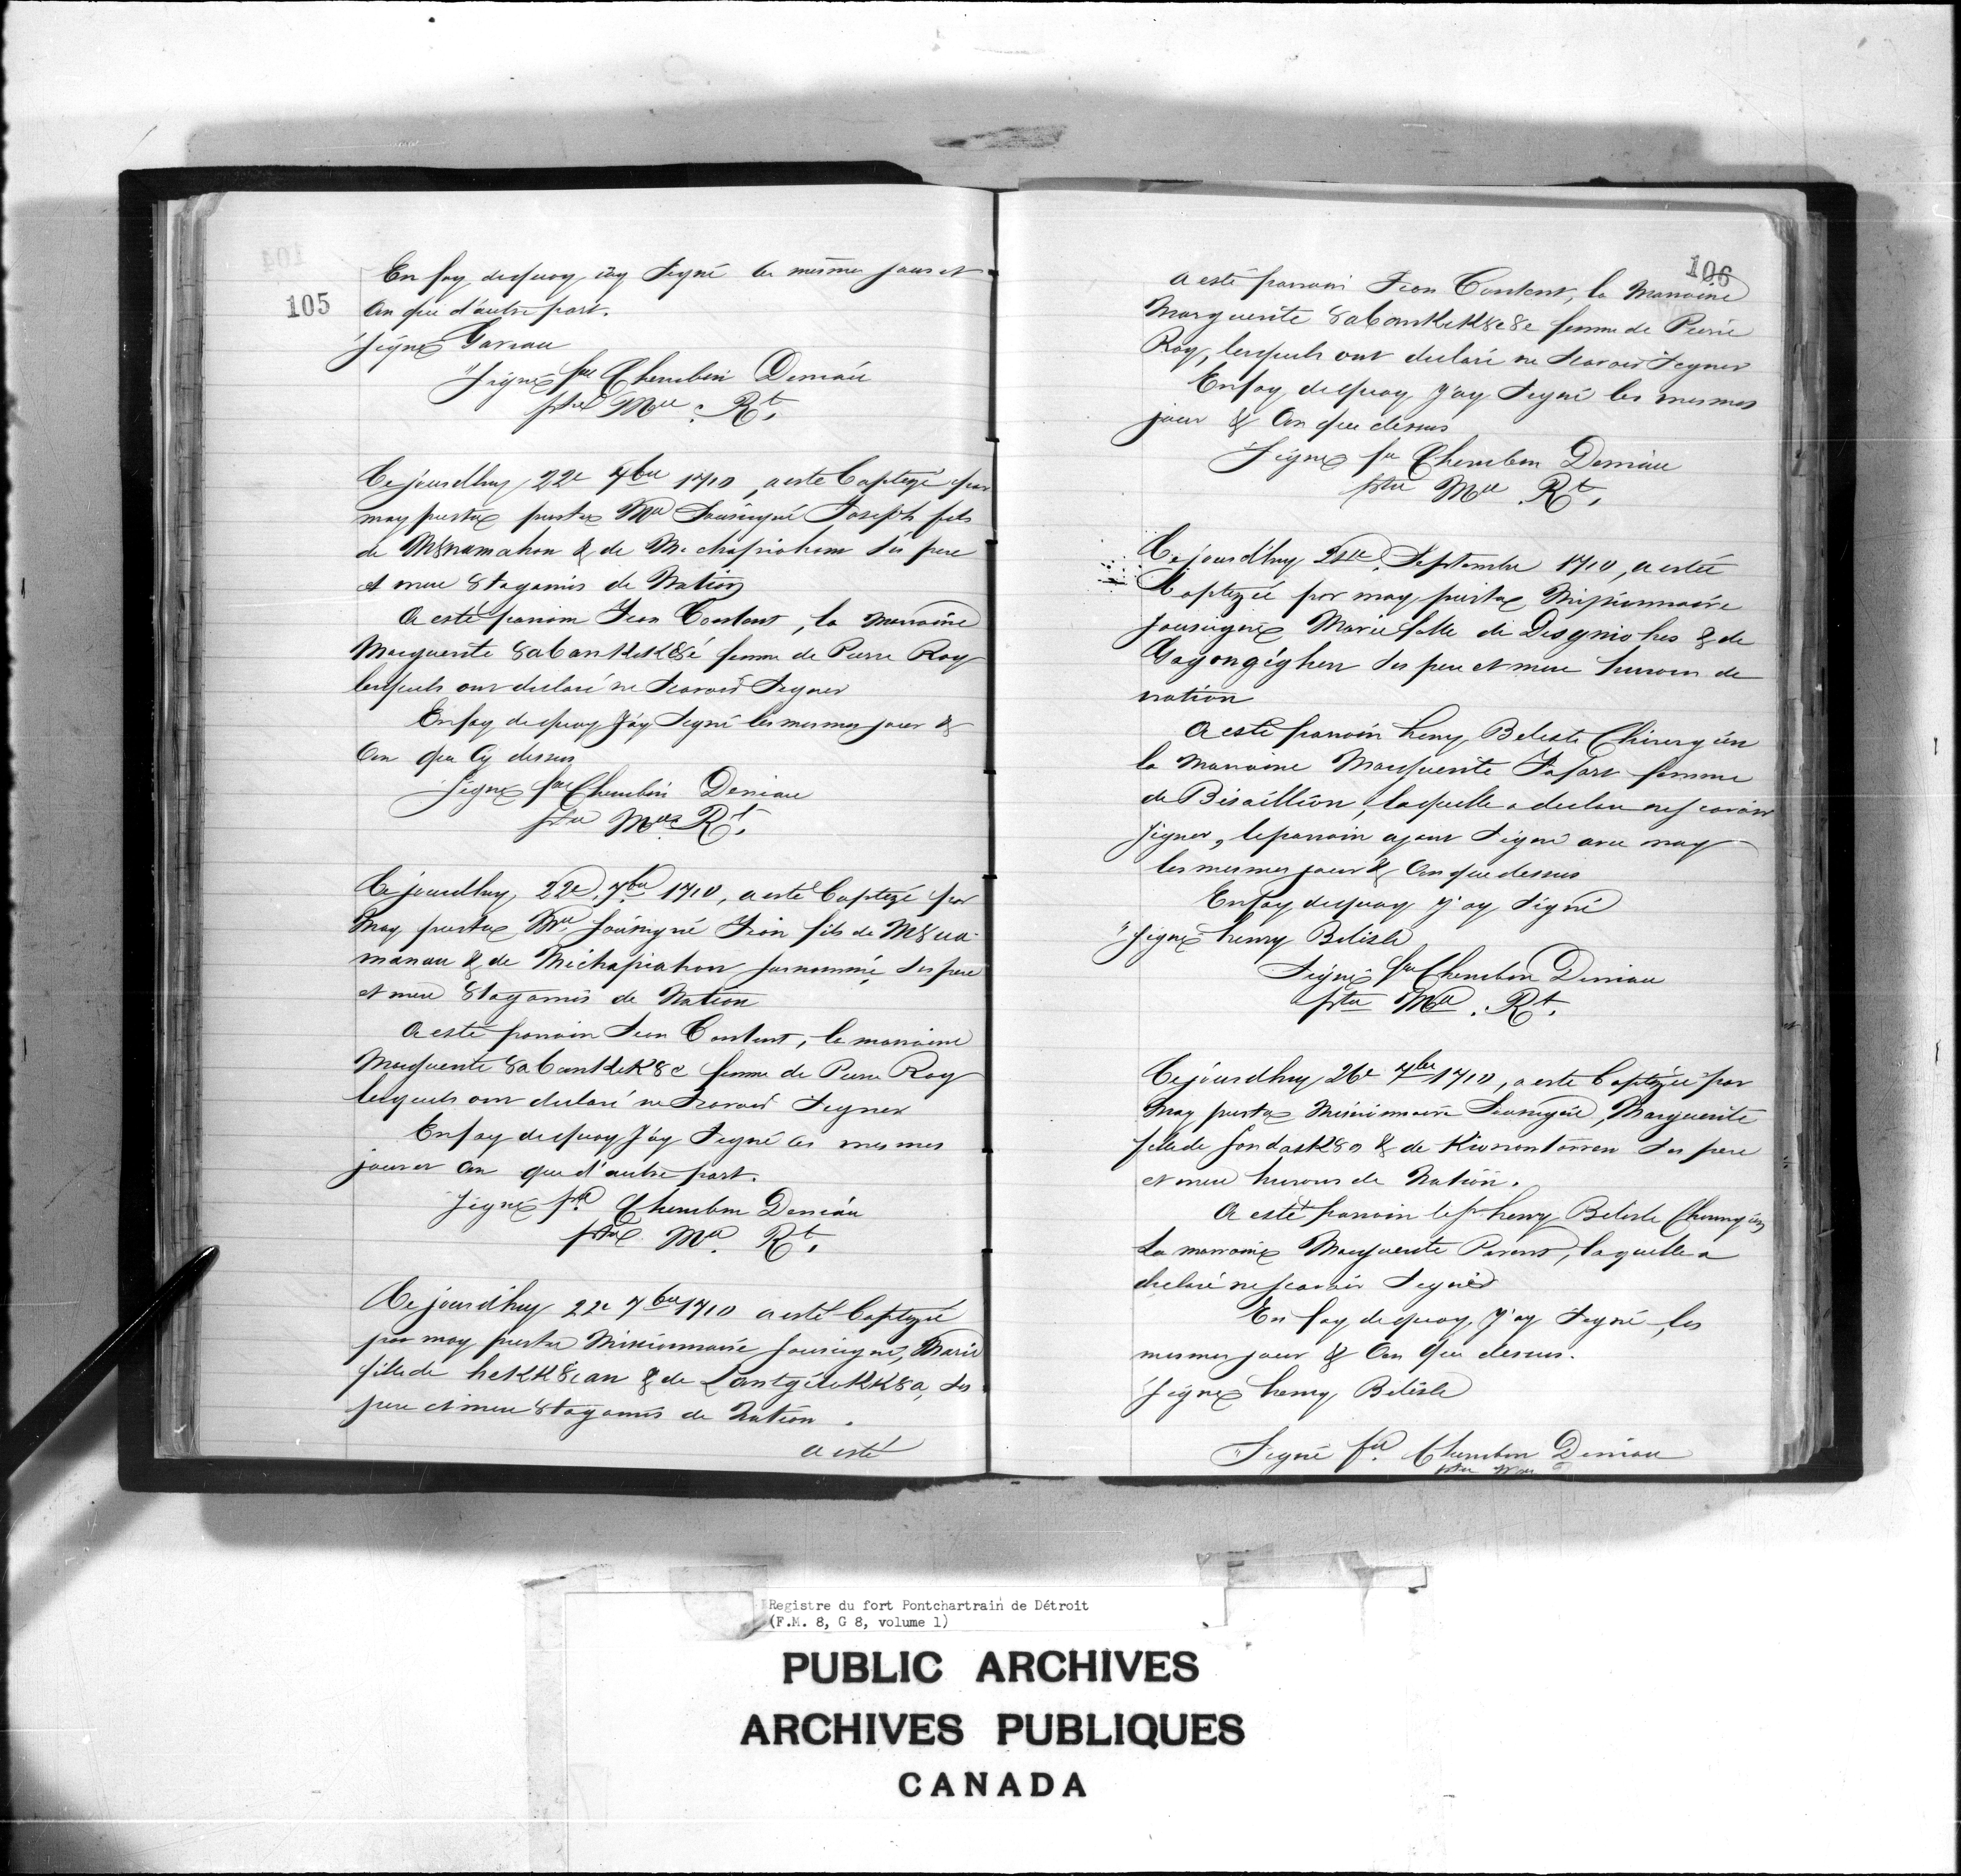 105
En foy dequoy iay Signé les mesmes jours et
An que d'autre part.
Signé Gareau
"Signé fre Cherubin Deniau
ptre Mre Rt.
Ce jourdhuy 22e 7bre 1710, a esté baptizé par
moy prestre Mre Sousigné Joseph fils
de M8namahon & de Michapiohim Ses pere
et mere 8tagamis de Nation
A esté parain Jean Contant, la Maraine
Marguerite 8abankekk8é femme de Pierre Roy
lesquels ont declaré ne Scavoir Signer
En foy dequoy J'ay Signé les mesmes jour &
An que Cy dessus
Signé fre Cherubin Deniau
ptre Mre Rt.
Ce jourdhuy 22e 7bre 1710, a esté baptizé par
Moy prestre Mre Sousigné Jean fils de M8na-
manau & de Michapiahon surnommé, Ses pere
et mere 8tagamis de Nation
A esté parrain Jean Contant, la maraine
Marguerite 8abankekk8e femme de Pierre Roy
lesquels ont declaré ne Scavoir Signer
En foy dequoy J'ay Signé les mesmes
jour et An que d'autre part.
Signé fre Cherubin Deniau
ptre Mre Rt.
Ce jourdhuy 22e 7bre 1710 a esté baptizée
par moy prestre Missionnaire Sousigné, Marie
fille de hekk8ian & de Ses
pere et mere 8tagamis de Nation.
a esté
106
A esté parrain Jean Contant, la Maraine
Marguerite 8abankekk8e8e femme de Pierre
Roy, lesquels ont declaré ne Scavoir Signer
En foy dequoy J'ay Signé les mesmes
jour & An que dessus
Signé fre Cherubin Deniau
ptre Mre Rt.
Ce jourdhuy Septembre 1710, a estée
baptizée par moy prestre Missionnaire
sousigné Marie fille de Disgniohes & de
Gayongéghen Ses pere et mere hurons de
nation
A esté parrain henry Beleste Chirurgien
la Maraine Marguerite Fafart femme
de Bisaillion, laquelle a declaré ne scavoir
Signer, le parrain ayant Signé avec moy
les mesmes jour & An que dessus
En foy dequoy J'ay Signé
"Signé henry Bélisle
Signé fre Cherubin Deniau
ptre Mre. Rt.
Ce jourdhuy 26e 7bre 1710, a esté baptizée par
Moy prestre Missionnaire Sousigné, Marguerite
fille de Sondask8a & de Kiononlonnen Ses pere
et mere hurons de Nation.
A esté parrain le Sr henry Bélisle Chirurgien
La marraine Marguerite Parent, laquelle a
declaré ne scavoir Signer
En foy dequoy, J'ay Signé, les
mesmes jour & An que dessus.
Signé henry Bélisle
"Signé fre. Cherubin Deniau
ptre Mre
Registre du fort Pontchartrain de Détroit
(F.M. 8, G 8, volume 1)
PUBLIC ARCHIVES
ARCHIVES PUBLIQUES
CANADA